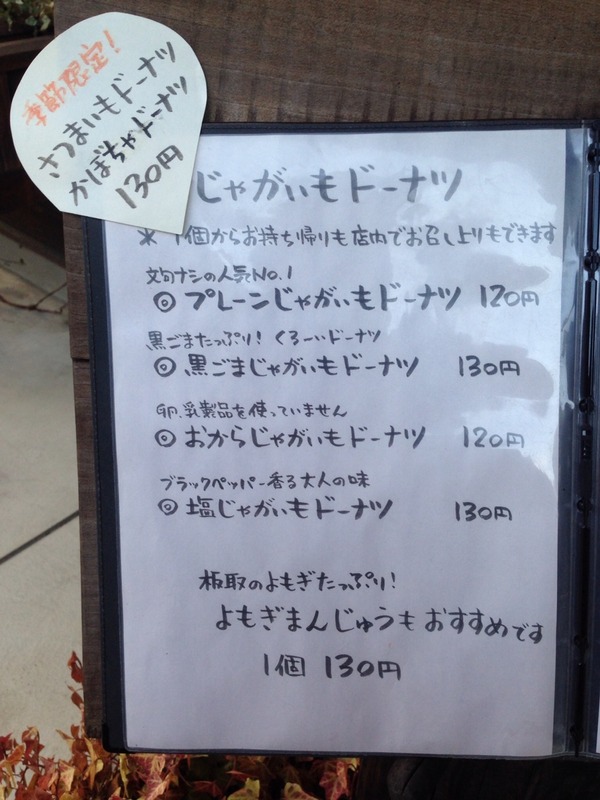 季節限定!
さつまいもドーナツ
かぼちゃドーナツ
130円
じゃがいもドーナツ
* 1個からお持ち帰りも店内でお召し上りもできます
文句ナシの人気NO.1
◎ プレーンじゃがいもドーナツ 120円
黒ごまたっぷり! くろーいドーナツ
◎ 黒ごまじゃがいもドーナツ 130円
卵、乳製品を使っていません
◎ おからじゃがいもドーナツ 120円
ブラックペッパー香る大人の味
◎ 塩じゃがいもドーナツ 130円
板取のよもぎたっぷり!
よもぎまんじゅうもおすすめです
1個 130円